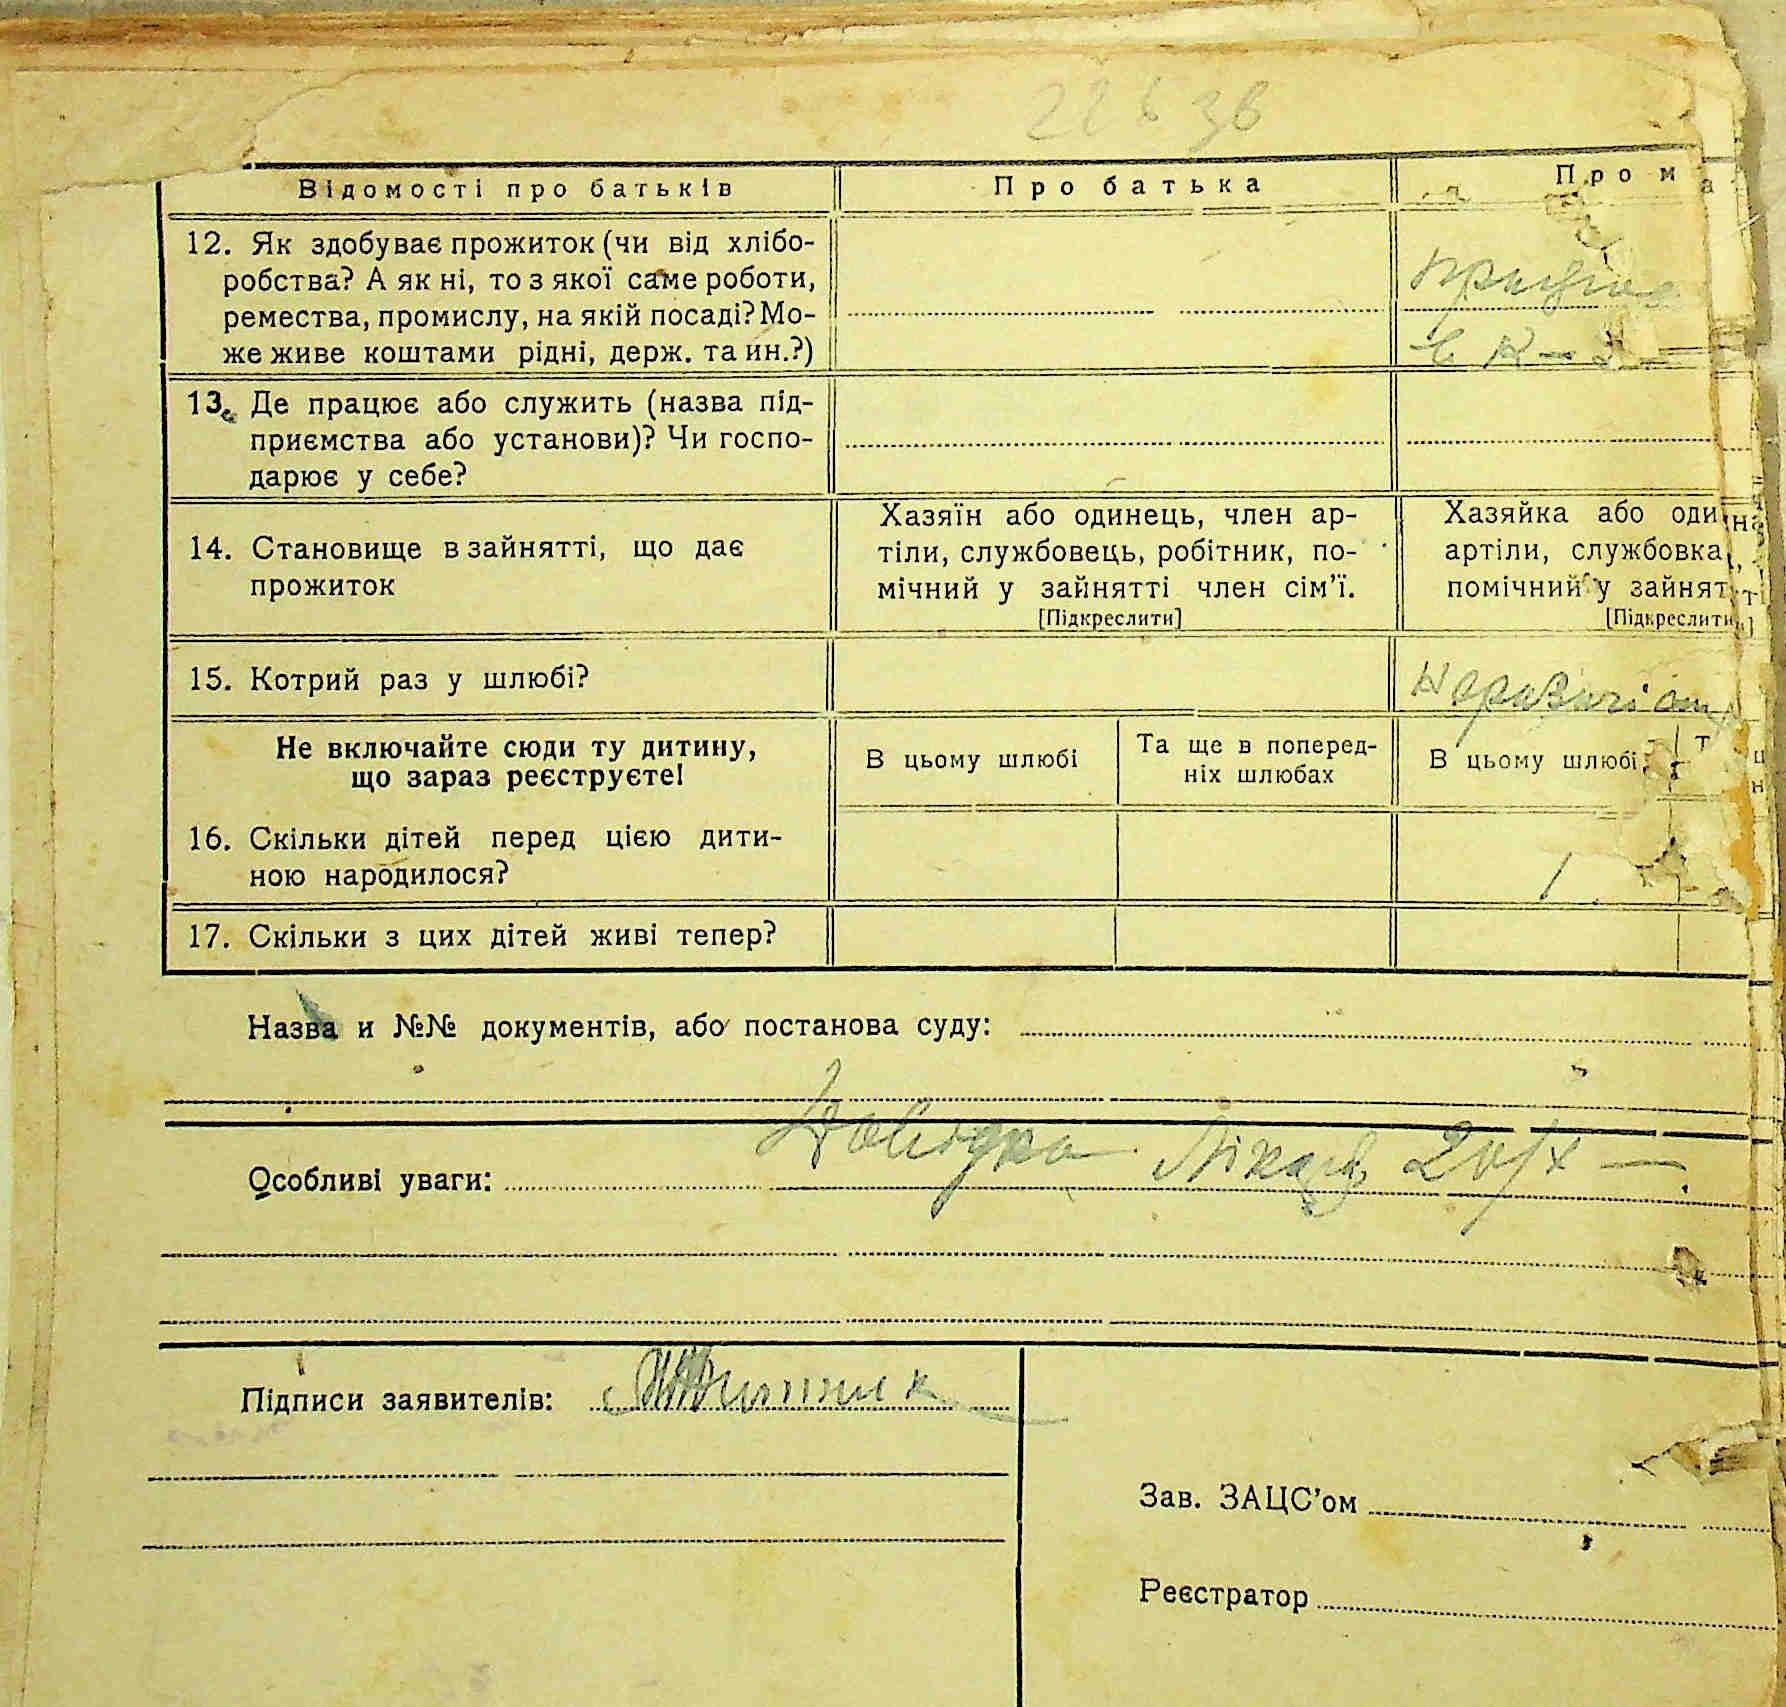 226 зв
Відомості про батьків
Про батька
Про ма
12. Як здобуває прожиток (чи від хлібо-
робства? А як ні, то з якої саме роботи,
ремества, промислу, на якій посаді? Мо-
же живе коштами рідні, держ. та ин.?)
Працює
в к-
13. Де працює або служить (назва під-
приємства або установи)? Чи госпо-
дарює у себе?
14. Становище в зайнятті, що дає
прожиток
Хазяїн або одинець, член ар-
тіли, службовець, робітник, по-
мічний у зайнятті член сім'ї.
[Підкреслити]
Хазяйка або одина
артіли, службовка,
помічний у зайнятті
[Підкреслити]
15. Котрий раз у шлюбі?
Не включайте сюди ту дитину,
що зараз реєструєте!
В цьому шлюбі
Та ще в поперед-
ніх шлюбах
В цьому шлюбі
Т
16. Скільки дітей перед цією дити-
ною народилося?
1
17. Скільки з цих дітей живі тепер?
Назва и №№ документів, або постанова суду:
Довідка Лікар 20/X —
Особливі уваги:
Підписи заявителів:
Зав. ЗАЦС'ом
Реєстратор